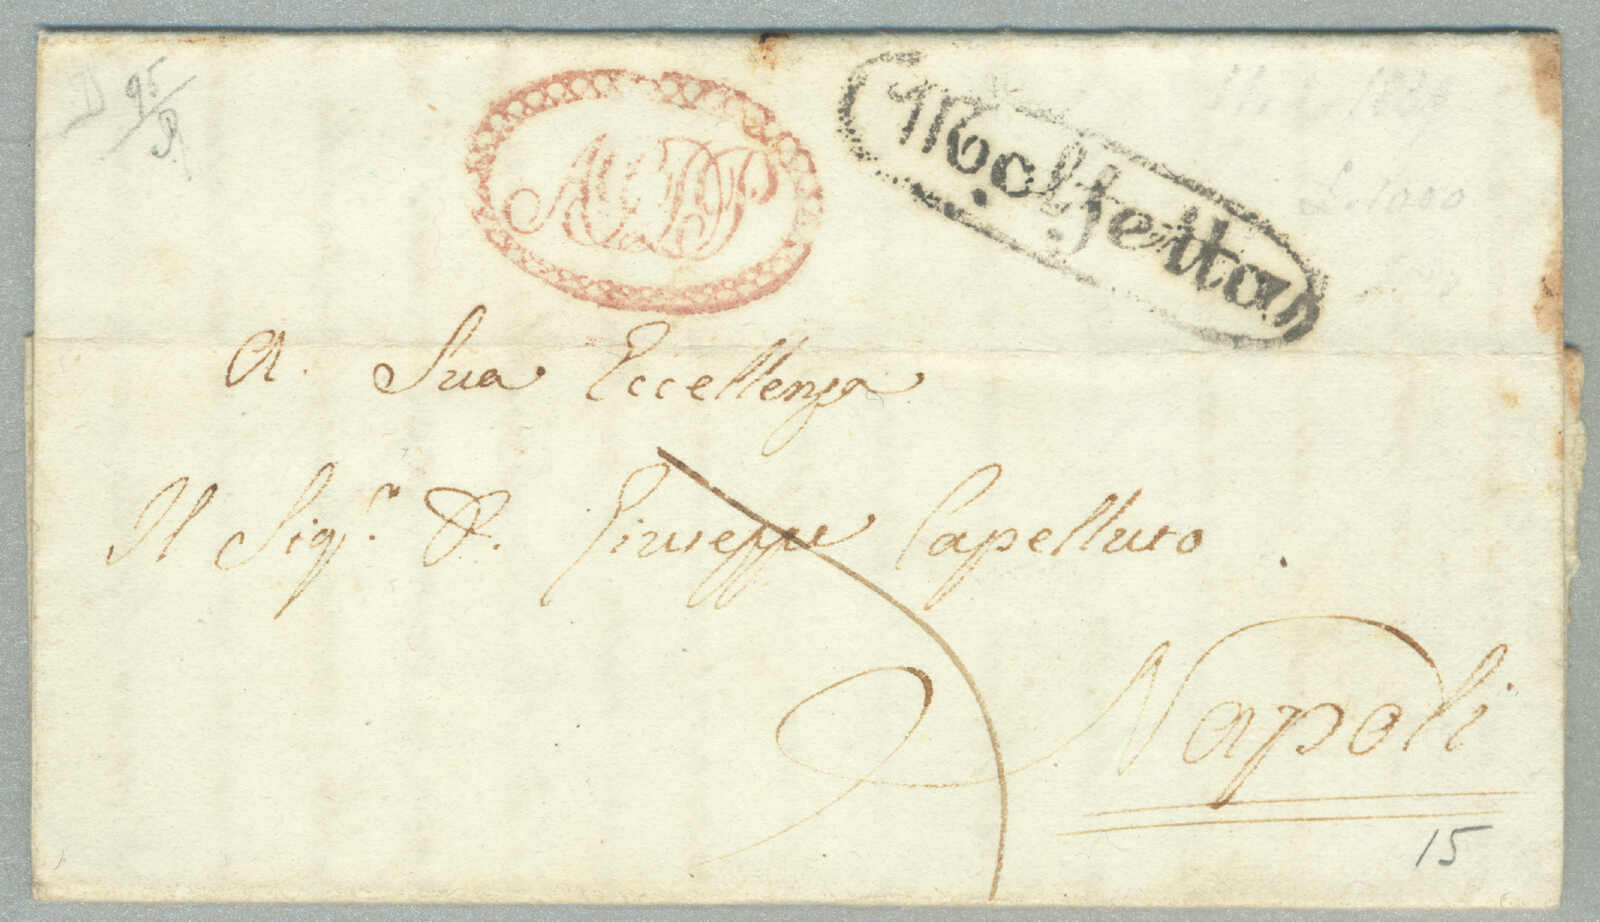 95
AGDP
Molfetta
£. 1000
A. Sua Eccellenza
Il Sigr. D. Giuseppe Capelluto.
Napoli
15